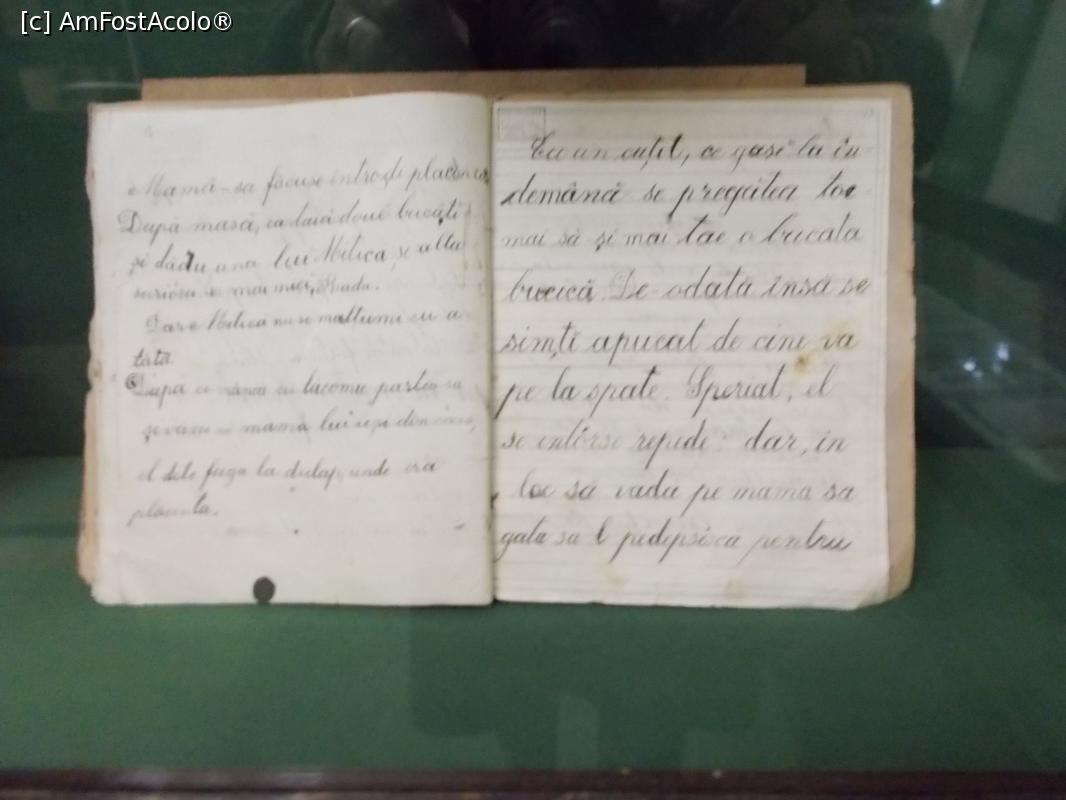 [c] AmFostAcolo®
Mamă-sa făcuse intro di placinta
După masă, ea taiă doué bucăți
și dădu una lui Mitica, și alta
suriórei mai mici, Rada.
Dar Mitică nu se multumi cu a-
tâta.
După ce mânca cu lacomie partea sa
și vazu mama lui ieși din casa,
el dete fuga la dulap, unde era
placinta.
Cu un cuțit, ce gasi la în-
demână se pregătea toc
mai să-și mai tae o bucata
bucică. De-odată insă se
simți apucat de cine va
pe la spate. Speriat, el
se intórse repede: dar, in
loc să vada pe mama sa
gata sa l pedepsésca pentru